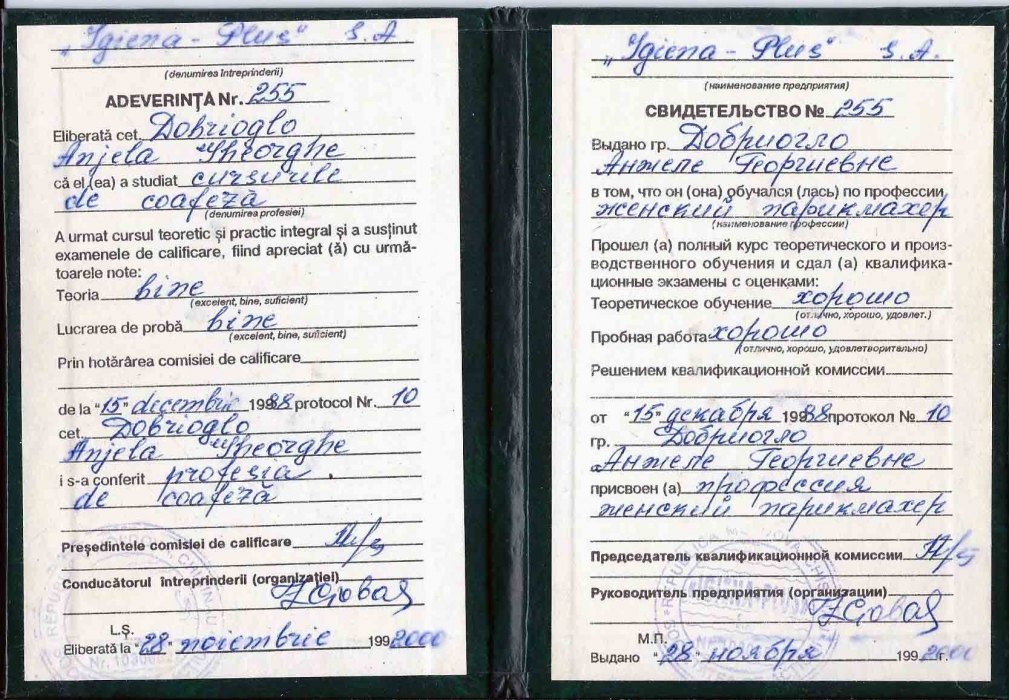 „Igiena - Plus" S.A
(denumirea întreprinderii)
ADEVERINŢA Nr. 255
Eliberată cet. Dobrioglo
Anjela Gheorghe
că el (ea) a studiat cursurile
de coafeză
(denumirea profesiei)
A urmat cursul teoretic și practic integral și a susţinut
examenele de calificare, fiind apreciat (ă) cu urmă-
toarele note:
Teoria bine
(excelent, bine, suficient)
Lucrarea de probă bine
(excelent, bine, suficient)
Prin hotărârea comisiei de calificare
de la "15" decembrie 1988 protocol Nr. 10
cet. Dobrioglo
Anjela Gheorghe
i s-a conferit profesia
de coafeză
Preşedintele comisiei de calificare
Conducătorul întreprinderii (organizaţiei)
L.Ș.
Eliberată la "28" noiembrie 199 2000
„Igiena - Plus" S.A.
(наименование предприятия)
СВИДЕТЕЛЬСТВО № 255
Выдано гр. Добриогло
Анжеле Георгиевне
в том, что он (она) обучался (лась) по профессии
женский парикмахер
(наименование профессии)
Прошел (а) полный курс теоретического и произ-
водственного обучения и сдал (а) квалифика-
ционные экзамены с оценками:
Теоретическое обучение хорошо
(отлично, хорошо, удовлет.)
Пробная работа хорошо
(отлично, хорошо, удовлетворительно)
Решением квалификационной комиссии
от "15" декабря 1988 протокол № 10
гр. Добриогло
Анжеле Георгиевне
присвоен (а) профессия
женский парикмахер
Председатель квалификационной комиссии
Руководитель предприятия (организации)
"IGIENA-PLUS"
М.П.
Выдано "28" ноября 199 2000 г.